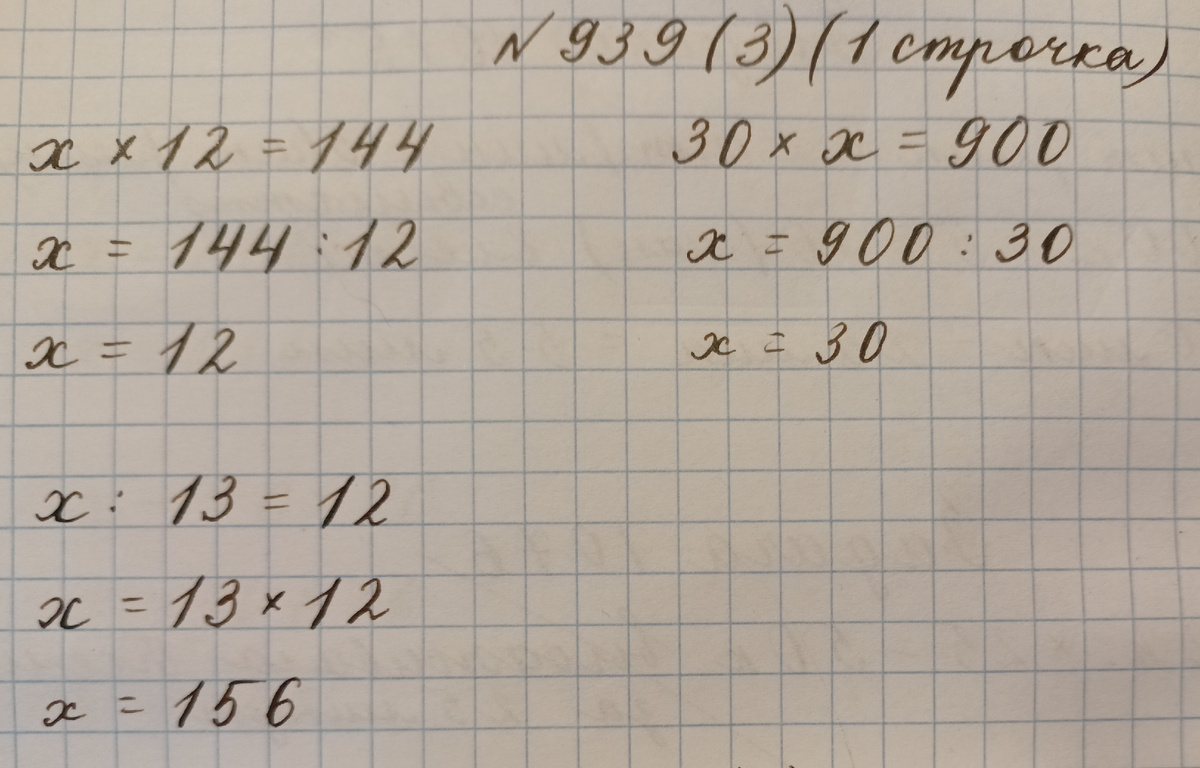 № 939 (3) (1 строчка)
x × 12 = 144
x = 144 : 12
x = 12
30 × x = 900
x = 900 : 30
x = 30
x : 13 = 12
x = 13 × 12
x = 156